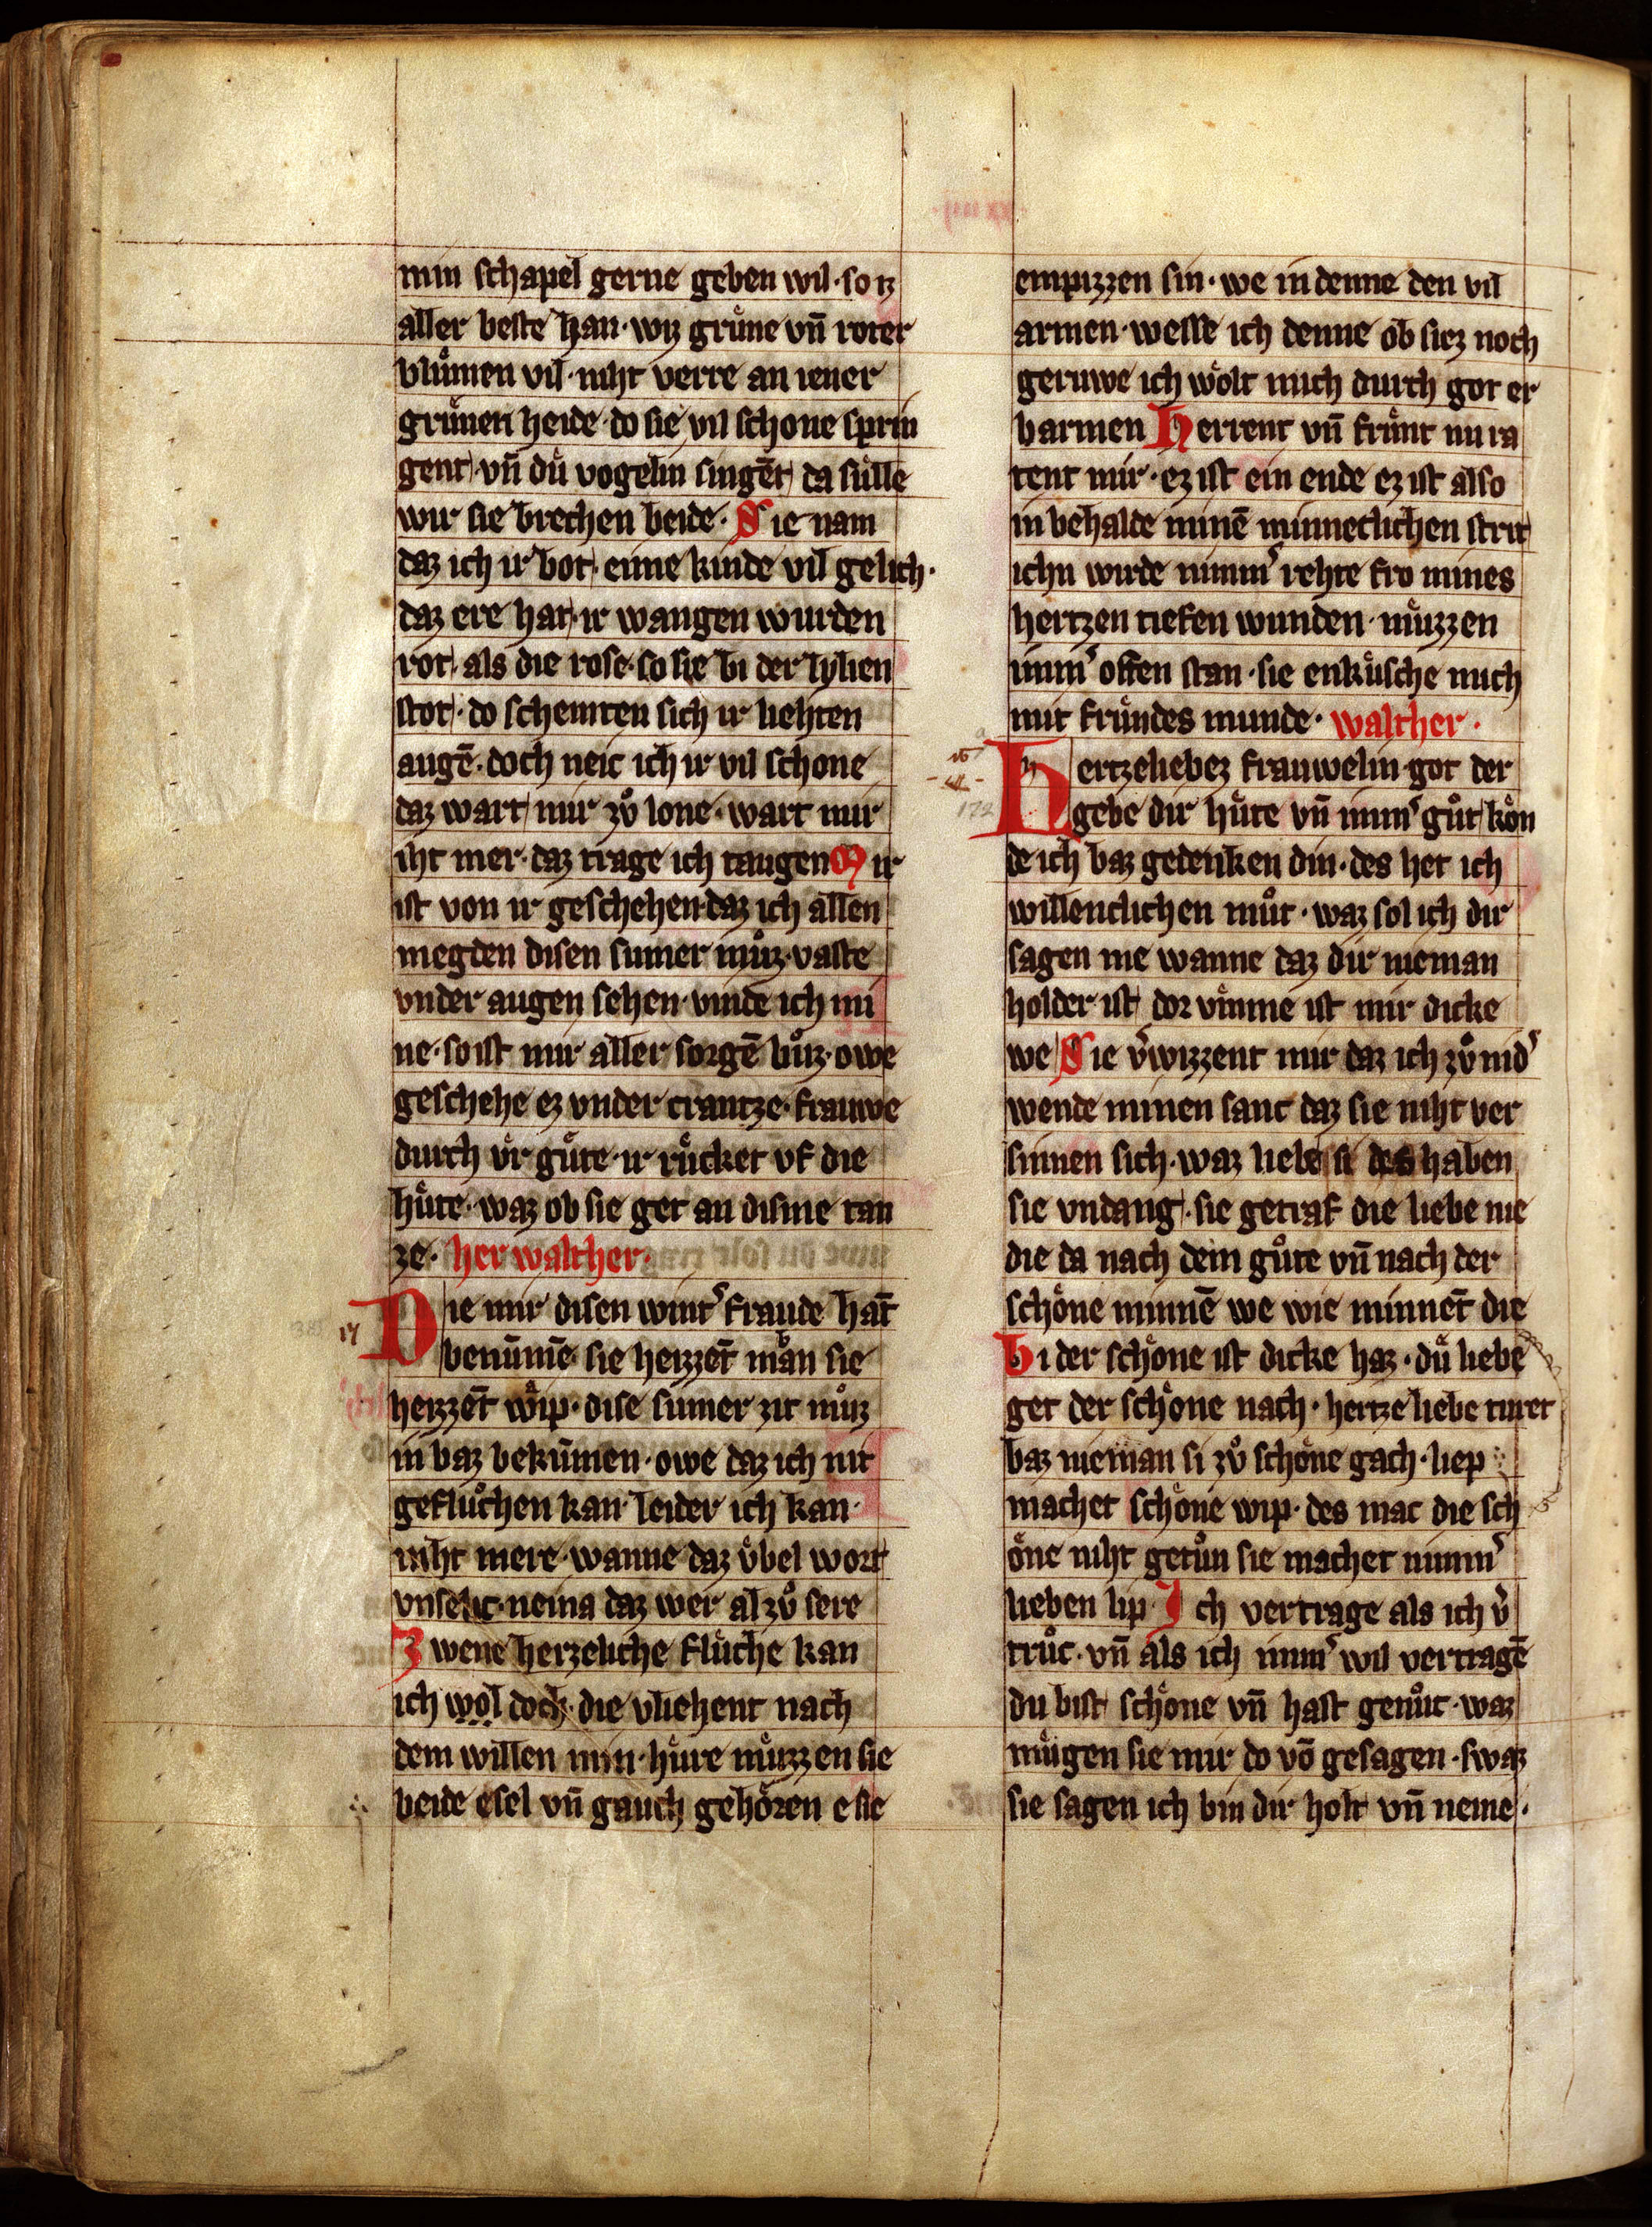 min schapel gerne geben wil·so iz
aller beste han·wiz grüne vñ roter
blůmen vil·niht verre an iener
grünen heide·do sie vil schone sprin
gent vñ dü vogelin singēt da sülle
wir sie brechen beide·Sie nam
daz ich ir bot·eime kinde vil gelich·
daz ere hat·ir wangen wurden
rot·als die rose·so sie bi der lylien
stot·do schemten sich ir liehten
augē·doch neic ich ir vil schone
daz wart mir zů lone·wart mir
iht mer·daz trage ich taugen Mir
ist von ir geschehen·daz ich allen
megden disen sumer můz·vaste
vnder augen sehen·vinde ich mi
ne·so ist mir aller sorgē bůz·owe
geschehe ez vnder crantze·frauwe
durch ür güte·ir rücket vf die
hüte·waz ob sie get an disme tan
ze·her walther·
Die mir disen wintʾ fraude hāt
benūmē·sie heizzēt man sie
heizzēt wip·dise sumer zit můz
in baz bekūmen·owe daz ich nit
geflůchen kan·leider ich kan·
niht mere·wanne daz übel wort
vnselic·neina daz wer al zů sere
Zwene herzeliche flüche kan
ich wol doch·die vliehent nach
dem willen min·hüre müzzen sie
beide esel vñ gauch gehören e sie
empizzen sin·we in denne den vil
armen·wesse ich denne ob siez noch
geruwe ich wölt mich durch got er
barmen Herrent vñ fründt nu ra
tent mir·ez ist ein ende ez ist also
in behalde minē minneclichen strit
ichn wirde nimmʾ rehte fro mines
hertzen tiefen wunden·müzzen
immʾ offen stan·sie enküsche mich
mit fründes munde·walther·
Hertzeliebez frauwelin·got der
gebe dir hüte vñ immʾ gůt kön
de ich baz gedenken din·des het ich
willenclichen můt·waz sol ich dir
sagen me wanne daz dir nieman
holder ist dor vmme ist mir dicke
we Sie v̓wizzent mir daz ich zů nidʾ
wende minen sanc daz sie niht ver
sinnen sich·waz liebe si des haben
sie vndang·sie getraf die liebe nie
die da nach dem gůte vñ nach der
schöne minnē we wie minnēt die
Bi der schöne ist dicke haz·dü liebe
get der schöne nach·hertze liebe tiurer
baz nieman si zů schöne gach·liep
machet schöne wip·des mac die sch
öne niht getůn sie machet nimmʾ
lieben lip·Ich vertrage als ich v̓
trůc·vñ als ich immʾ wil vertragē
du bist schöne vñ hast genůc·waz
mügen sie mir do võ gesagen·swaz
sie sagen ich bin dir holt vñ neme·